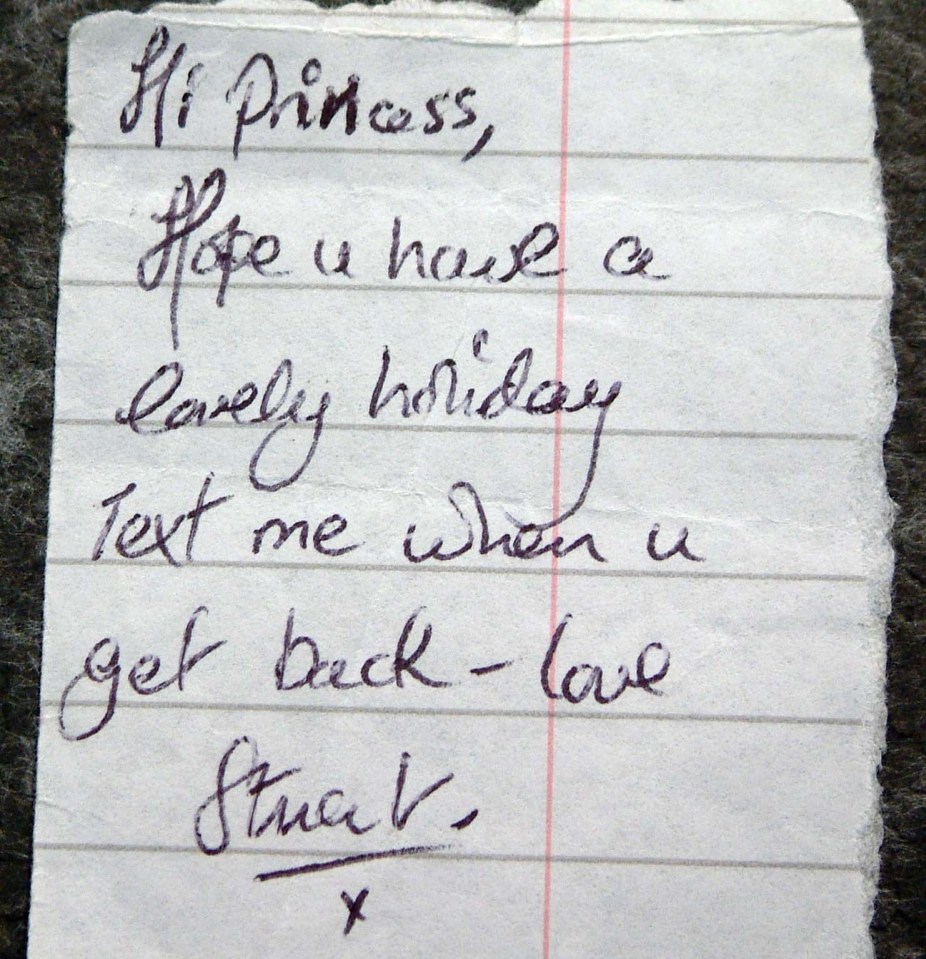 Hi Princess,
Hope u have a
lovely holiday
Text me when u
get back - love
Stuart.
x